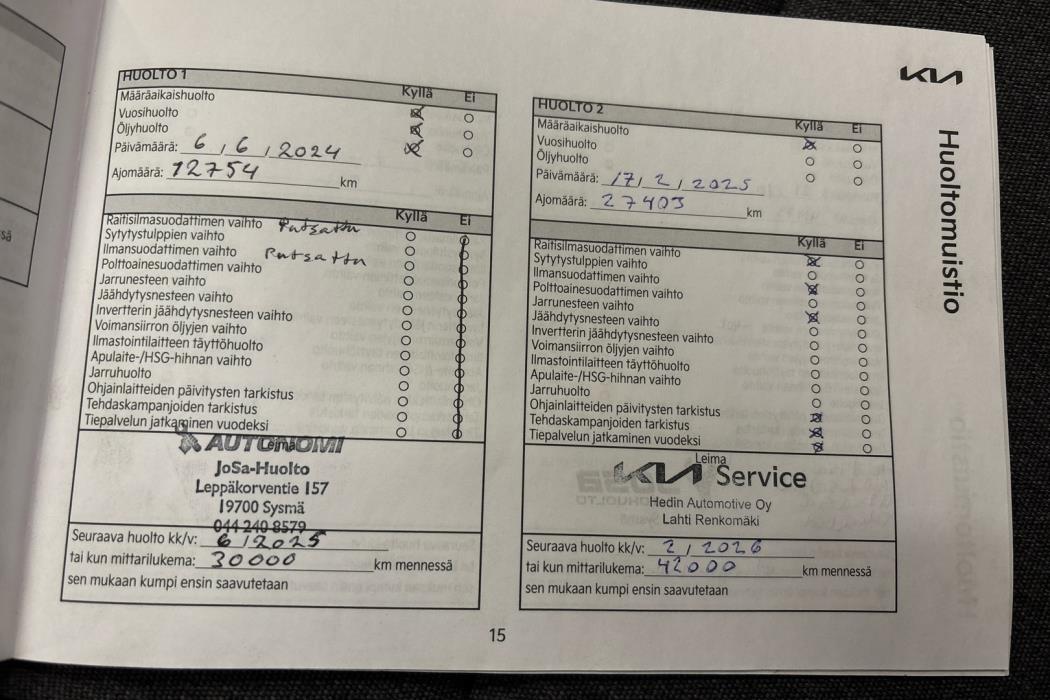 KIA
Huoltomuistio
HUOLTO 1
Kyllä Ei
Määräaikaishuolto
Vuosihuolto
Öljyhuolto
Päivämäärä: 6 / 6 / 2024
Ajomäärä: 12754 km
Kyllä Ei
Raitisilmasuodattimen vaihto Putsattu
Sytytystulppien vaihto
Ilmansuodattimen vaihto Putsattu
Polttoainesuodattimen vaihto
Jarrunesteen vaihto
Jäähdytysnesteen vaihto
Invertterin jäähdytysnesteen vaihto
Voimansiirron öljyjen vaihto
Ilmastointilaitteen täyttöhuolto
Apulaite-/HSG-hihnan vaihto
Jarruhuolto
Ohjainlaitteiden päivitysten tarkistus
Tehdaskampanjoiden tarkistus
Tiepalvelun jatkaminen vuodeksi
Leima
AUTONOMI
JoSa-Huolto
Leppäkorventie 157
19700 Sysmä
044 240 8579
Seuraava huolto kk/v: 6 / 2025
tai kun mittarilukema: 30000 km mennessä
sen mukaan kumpi ensin saavutetaan
HUOLTO 2
Kyllä Ei
Määräaikaishuolto
Vuosihuolto
Öljyhuolto
Päivämäärä: 17 / 2 / 2025
Ajomäärä: 27403 km
Kyllä Ei
Raitisilmasuodattimen vaihto
Sytytystulppien vaihto
Ilmansuodattimen vaihto
Polttoainesuodattimen vaihto
Jarrunesteen vaihto
Jäähdytysnesteen vaihto
Invertterin jäähdytysnesteen vaihto
Voimansiirron öljyjen vaihto
Ilmastointilaitteen täyttöhuolto
Apulaite-/HSG-hihnan vaihto
Jarruhuolto
Ohjainlaitteiden päivitysten tarkistus
Tehdaskampanjoiden tarkistus
Tiepalvelun jatkaminen vuodeksi
Leima
KIA Service
Hedin Automotive Oy
Lahti Renkomäki
Seuraava huolto kk/v: 2 / 2026
tai kun mittarilukema: 42000 km mennessä
sen mukaan kumpi ensin saavutetaan
15